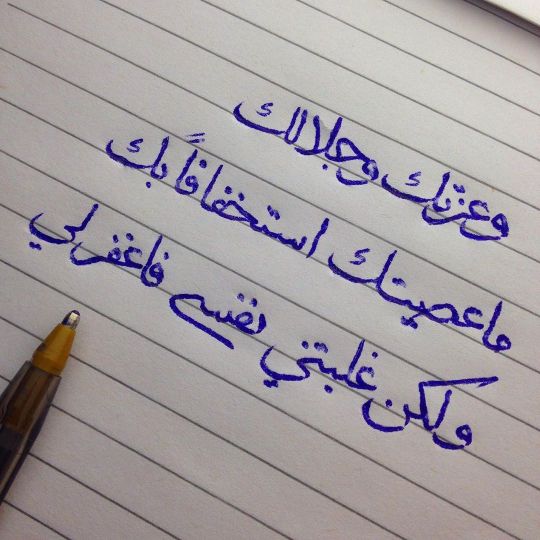 وعزتك وجلالك
ما عصيتك استخفافًا بك
ولكن غلبتني نفسي فاغفر لي